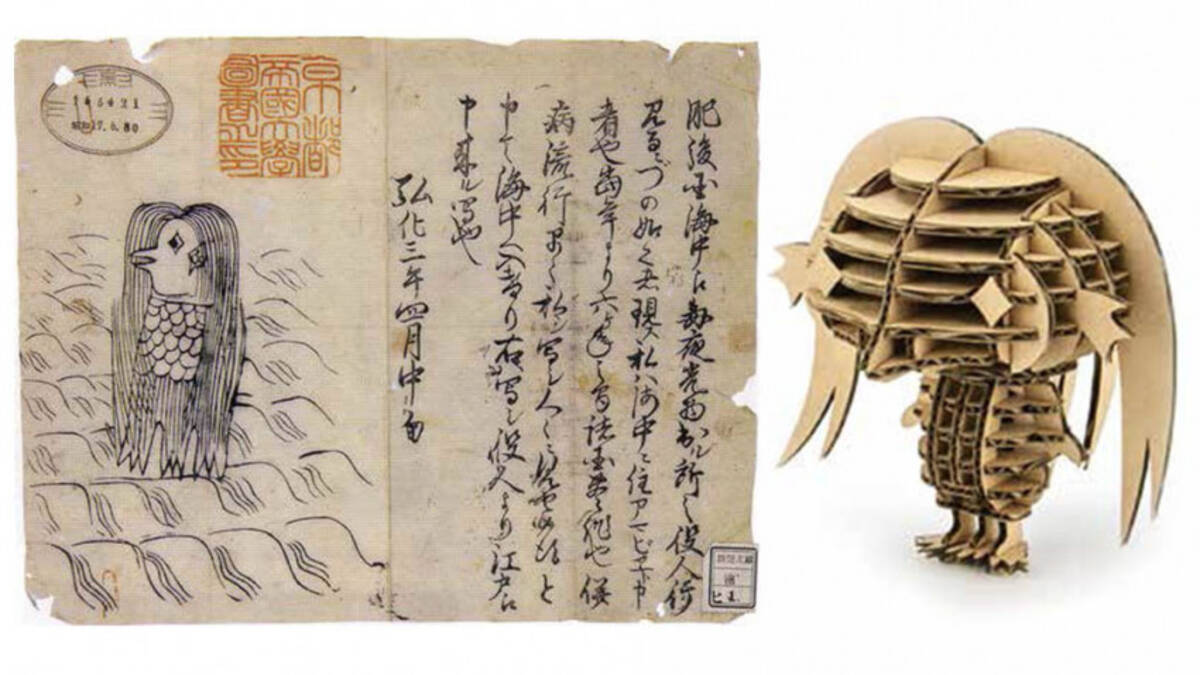 肥後国海中江毎夜光物出ル所之役人行
見るニづの如之者現ス私ハ海中ニ住アマビヱト申
者也当年より六ケ年之間諸国豊作也併
病流行早々私シ写シ人々ニ見せ候得と
申て海中へ入けり右写シ役人より江戸江
申来ル写也
弘化三年四月中旬
京都
帝國大學
圖書之印